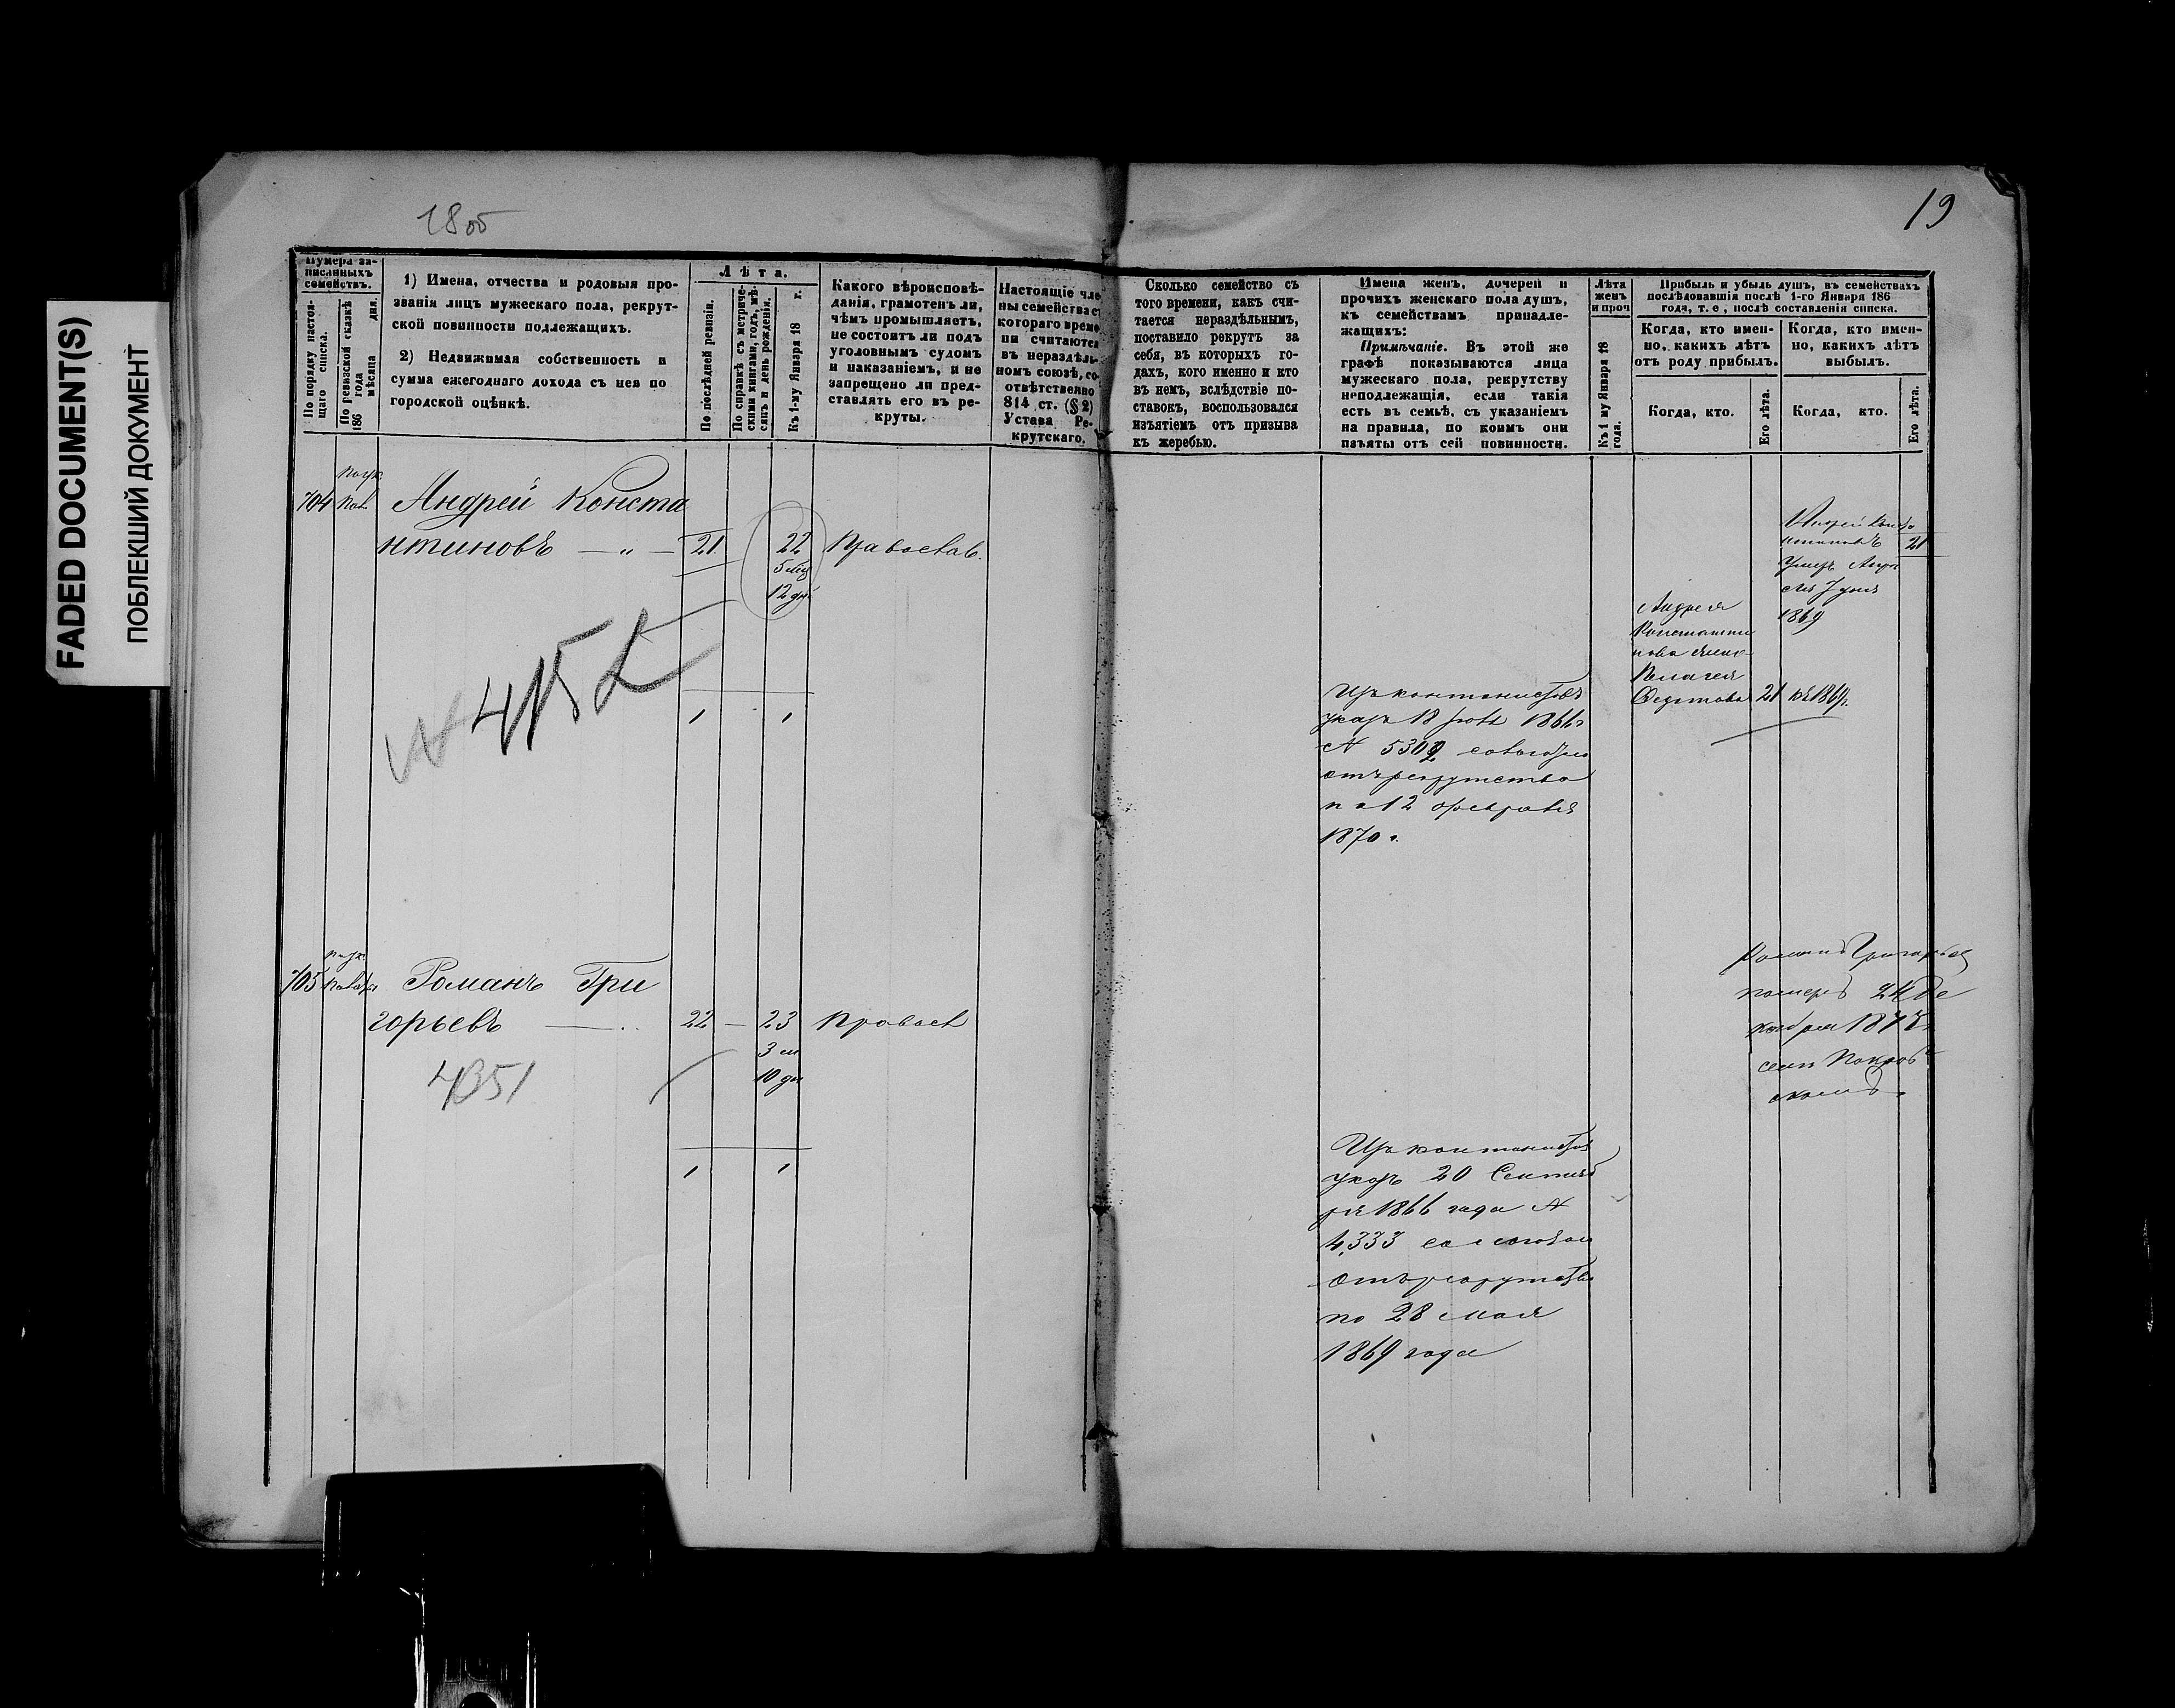 FADED DOCUMENT(S)
ПОБЛЕКШИЙ ДОКУМЕНТ
18 об
19
Нумера за-
писанныхъ
семействъ.
По порядку настоя-
щаго списка.
По ревизской сказкѣ
186 года
мѣсяца дня.
1) Имена, отчества и родовыя про-
званія лицъ мужескаго пола, рекрут-
ской повинности подлежащихъ.
2) Недвижимая собственность и
сумма ежегоднаго дохода съ нея по
городской оцѣнкѣ.
Лѣта.
По послѣдней ревизіи.
По справкѣ съ метриче-
скими книгами, годъ, мѣ-
сяцъ и день рожденія.
Къ 1-му Января 18 г.
Какого вѣроисповѣ-
данія, грамотенъ ли,
чѣмъ промышляетъ,
не состоитъ ли подъ
уголовнымъ судомъ
и наказаніемъ, и не
запрещено ли пред-
ставлять его въ ре-
круты.
Настоящіе чле-
ны семейства съ
котораго време-
ни считаются
въ нераздѣль-
номъ союзѣ, со-
отвѣтственно
814 ст. (§ 2)
Устава Ре-
крутскаго.
Сколько семейство съ
того времени, какъ счи-
тается нераздѣльнымъ,
поставило рекрутъ за
себя, въ которыхъ го-
дахъ, кого именно и кто
въ немъ, вслѣдствіе по-
ставокъ, воспользовался
изъятіемъ отъ призыва
къ жеребью.
Имена женъ, дочерей и
прочихъ женскаго пола душъ,
къ семействамъ принадле-
жащихъ:
Примѣчаніе. Въ этой же
графѣ показываются лица
мужескаго пола, рекрутству
неподлежащія, если такія
есть въ семьѣ, съ указаніемъ
на правила, по коимъ они
изъяты отъ сей повинности.
Лѣта
женъ
и проч
Къ 1 му Января 18
года.
Прибыль и убыль душъ, въ семействахъ
послѣдовавшія послѣ 1-го Января 186
года, т. е., послѣ составленія списка.
Когда, кто имен-
но, какихъ лѣтъ
отъ роду прибылъ.
Когда, кто имен-
но, какихъ лѣтъ
выбылъ.
Когда, кто.
Его лѣта.
Когда, кто.
Его лѣта.
704
Андрей Конста
нтиновъ — „ — 21 22 Православ.
5 мѣс
12 дн.
4152
1 1
Изъ кантонистовъ
указъ 18 1866 г
№ 5302
отъ рекрутства
по 12 февраля
1870 г.
Андрея
Константи
нова жена
Пелагея
Федотова 21
1869
21
705
Романъ Гри
горьевъ — 22 — 23 Правосл
3 м
10 дн
4351
1 1
Изъ кантонистовъ
указъ 20 Сентяб
ря 1866 года №
4,333
отъ рекрутства
по 28 мая
1869 года
Романъ Григорьев
померъ 24 де
кабря 187